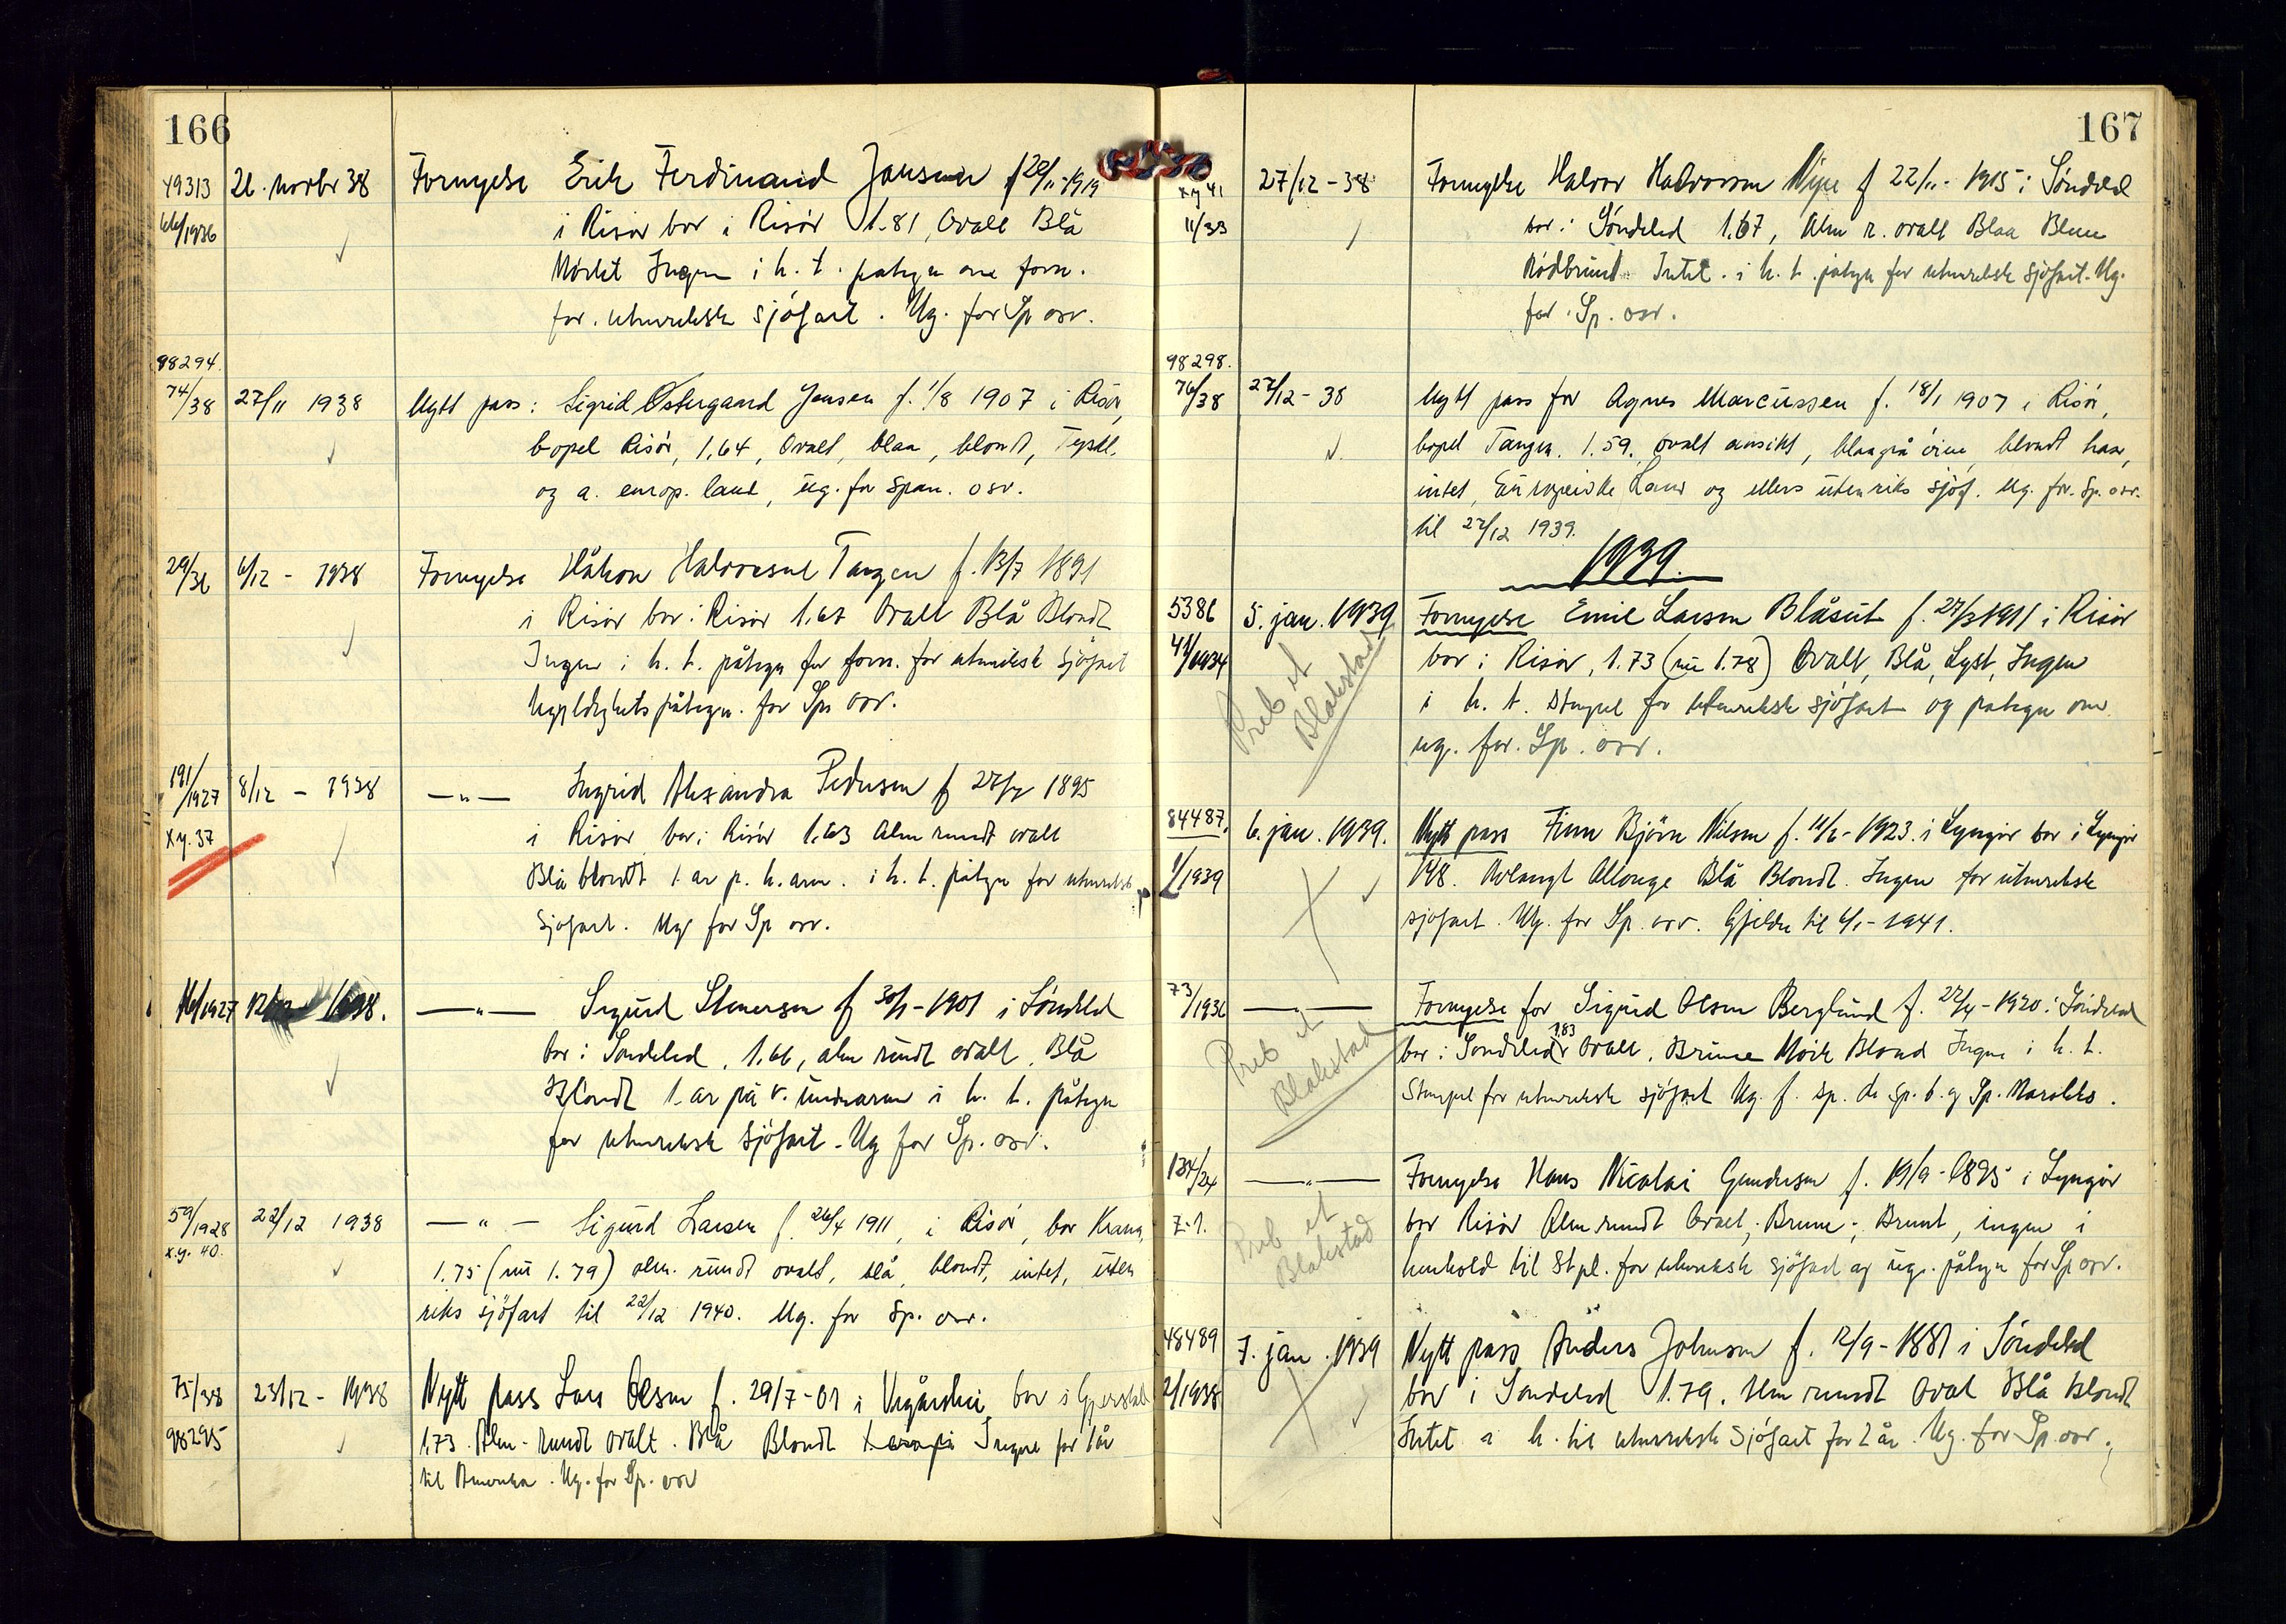 166
49313 21. novbr 38 Fornyelse Erik Ferdinand Jansen f 20/11-1919
66/1936 i Risör bor i Risör 1.81, Ovalt Blå
Mörkt Ingen i h. t. påtegn om forn.
for utenriksk sjöfart. Ug. for Sp osv.
98294
74/38 27/11 1938 Nytt pass: Sigrid Östergaard Jensen f. 1/8 1907 i Risör,
bopel Risör, 1,64, Ovalt, blaa, blondt, Tyskl.
og a. europ. land, ug. for Span. osv.
29/36 6/12 - 1938 Fornyelse Håkon Halvorsen Tangen f. 13/7 1891
i Risör bor i Risör 1.67 Ovalt Blå Blondt
Ingen i h. t. påtegn for forn. for utenriksk sjöfart
Ugyldighetspåtegn. for Sp osv.
191/1927 8/12 - 1938 —"— Ingrid Alexandra Pedersen f 27/7 1895
x y. 37 i Risör bor i Risör 1.63 Alm rundt ovalt
Blå blondt 1 ar p. h. arm. i h. t. påtegn for utenriksk
Sjöfart. Ug for Sp osv.
16/1927 12/12 1938. —"— Sigurd Stenersen f 30/1-1901 i Söndeled
bor i Söndeled, 1.66, alm rundt ovalt, Blå
Blondt 1 ar på v. underarm i h. t. påtegn
for utenriksk Sjöfart - Ug for Sp. osv.
59/1928 22/12 1938 —"— Sigurd Larsen f. 26/4 1911, i Risör, bor Krana,
x.y. 40. 1.75 (nu 1.79) alm. rundt ovalt, blå, blondt, intet, uten
riks sjöfart til 22/12 1940. Ug. for Sp. osv.
75/38 23/12 - 1938 Nytt pass Lars Olsen f. 29/7-01 i Vegårshei bor i Gjerstad
98295 1.73 Alm. rundt ovalt. Blå Blondt Ingen for 1 år
til Amerika. Ug. for Sp. osv
167
x y 41 27/12 - 38 Fornyelse Halvor Halvorsen Nipe f 22/11 - 1915 i Söndeled
11/33 bor i Söndeled 1.67, Alm r. ovalt Blaa
Rödbrunt Intet. i h. t. påtegn for utenriksk sjöfart. Ug.
for Sp. osv.
98298.
76/38 27/12 - 38 Nytt pass for Agnes Marcussen f. 18/1 1907 i Risör,
bopel Tangen. 1.59. ovalt ansikt, blaagrå öine, blondt haar,
intet, Europeiske Land og ellers utenriks sjöf. Ug. for Sp. osv.
til 27/12 1939.
1939.
5386 5. jan. 1939 Fornyelse Emil Larsen Blåsut f. 27/3 1911 i Risör
41/1934 bor i Risör, 1.73 (nu 1.78) Ovalt, Blå, Lyst, Ingen
i h. t. Stempel for Utenriksk sjöfart og påtegn om
ug. for Sp. osv.
Blakestad
84487. 6. jan. 1939. Nytt pass Finn Björn Nilsen f. 11/2 - 1923 i Lyngör bor i Lyngör
1/1939 1.48. Avlangt Blå Blondt. Ingen for utenriksk
sjöfart. Ug. for Sp. osv. Gjelder til 6/1 - 1941.
73/1936 —"— Fornyelse for Sigurd Olsen Berglund f. 22/4 - 1920 i Söndeled
bor i Söndeled 1.83 Ovalt, Brune Mörk Blond Ingen i h. t.
Stempel for utenriksk sjöfart Ug. f. Sp. de Sp. b. og Sp. Marokko.
Blakestad
134/24 —"— Fornyelse Hans Nicolai Gundersen f. 19/9 - 1895 i Lyngör
7-1. bor Risör Alm rundt Ovalt, Brune, Brunt, ingen i
henhold til Stpl. for utenriksk sjöfart og ug. påtegn for Sp osv.
Blakestad
48489 7. jan. 1939 Nytt pass Anders Johnsen f. 12/9 - 1881 i Söndeled
2/1938 bor i Söndeled 1.79. Alm rundt Oval Blå Blondt
Intet i h. til utenriksk Sjöfart for 2 år. Ug. for Sp. osv.